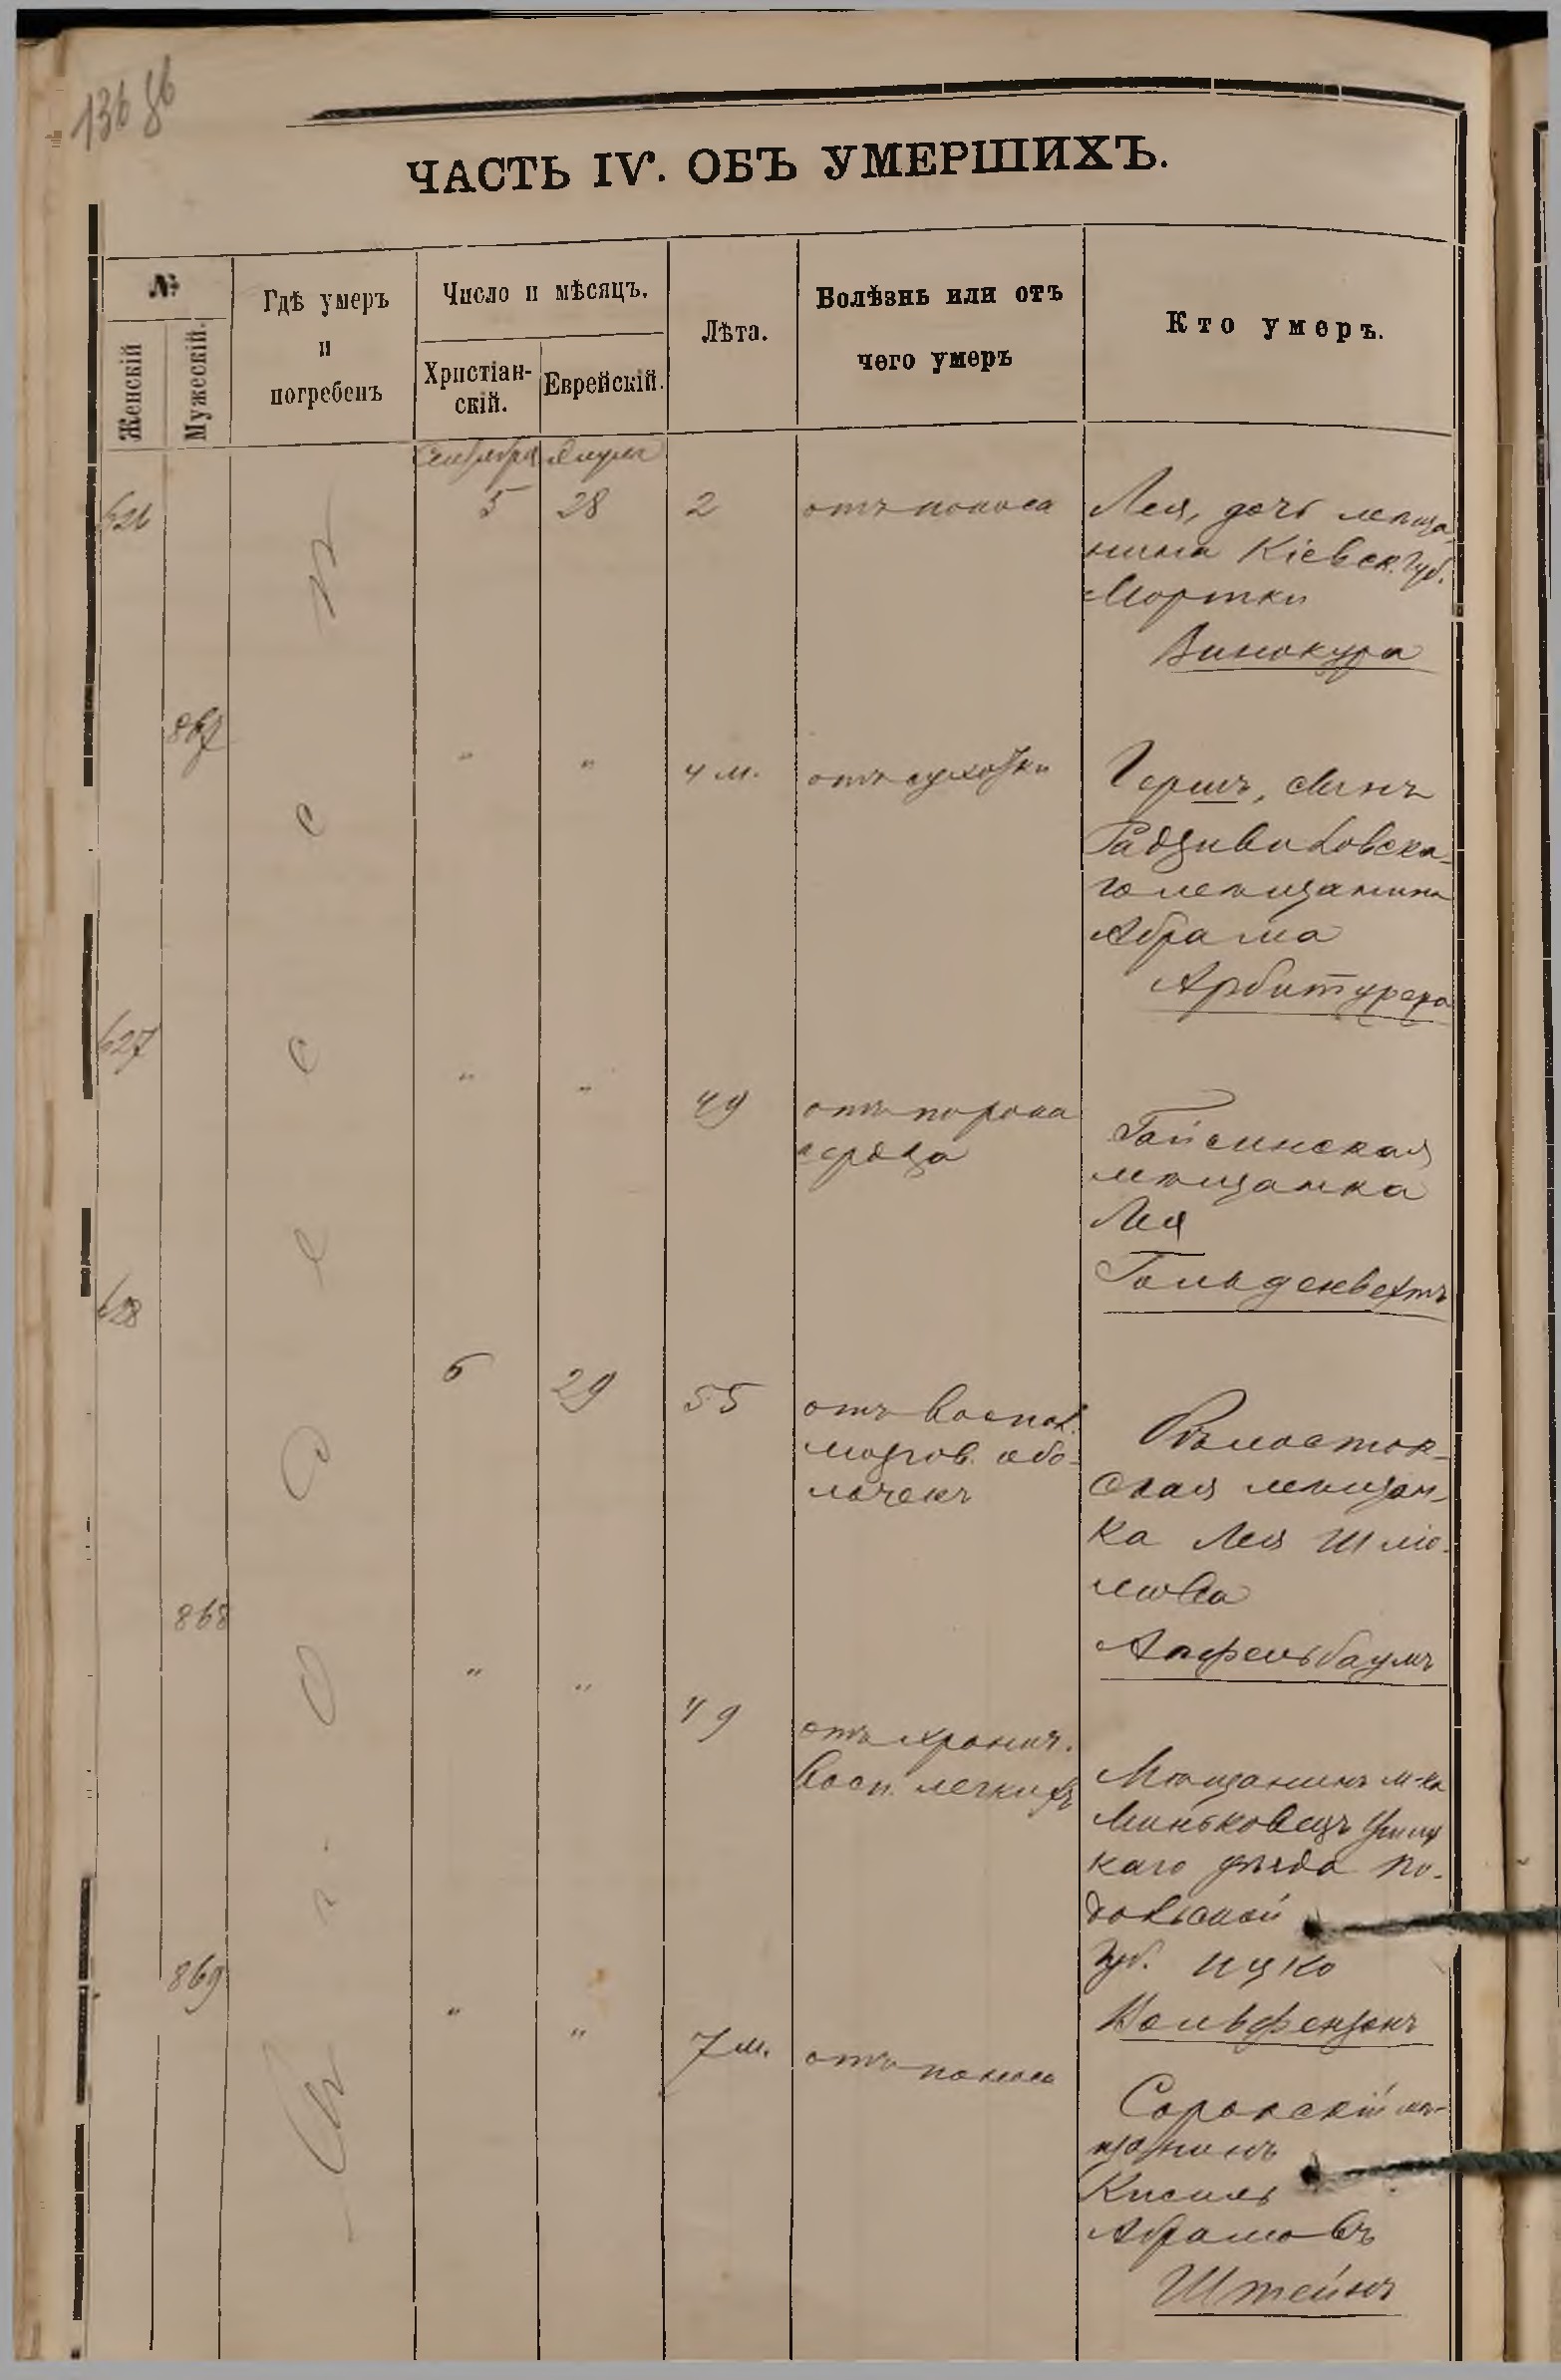 136 86
ЧАСТЬ IV. ОБЪ УМЕРШИХЪ.
№
Женскій
Мужескій.
Гдѣ умеръ
и
погребенъ
Число и мѣсяцъ.
Христіан-
скій.
Еврейскій.
Лѣта.
Болѣзнь или отъ
чего умеръ
Кто умеръ.
въ г. Одессѣ
Сентября Элула
626
5 28 2 отъ поноса
Лея, дочь мѣща-
нина Кіевск. Губ.
Мортки
Винокура
867
" " 4 м. отъ сухотки
Гершъ, сынъ
Радзивиловска-
го мѣщанина
Абрама
Арбитурера
627
" " 49 отъ порока
сердца
Гайсинская
мѣщанка
Лея
Гольденвехтъ
628
6 29 55 отъ воспал.
мозгов. обо-
лочекъ
Бѣлосток-
ская мѣщан-
ка Лея Шліо-
мова
Апфельбаумъ
868
" " 49 отъ хронич.
восп. легкихъ
Мѣщанинъ м-ка
Миньковецъ Ушиц
каго уѣзда По-
дольской
губ. Ицко
Вольфензонъ
869
" " 7 м. отъ поноса
Сорокскій мѣ-
щанинъ
Кисиль
Абрамовъ
Штейнъ